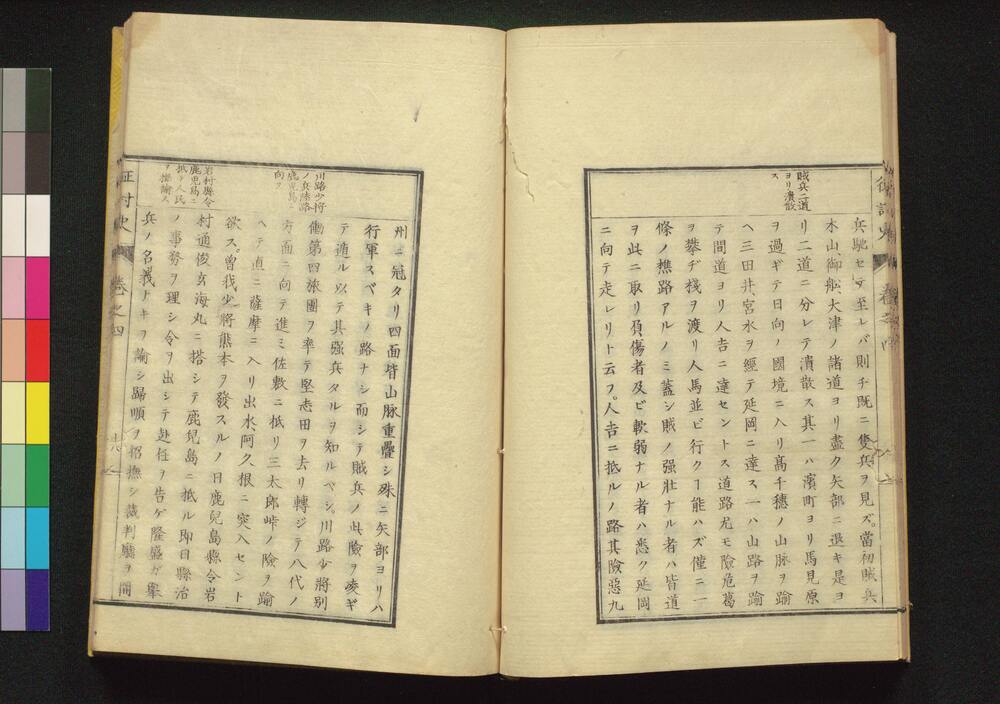 賊兵二道
ヨリ潰散
ス
兵馳セテ至レバ則チ既ニ隻兵ヲ見ズ。當初賊兵
木山御船、大津ノ諸道ヨリ盡ク矢部ニ退キ是ヨ
リ二道ニ分レテ潰散ス其一ハ濱町ヨリ馬見原
ヲ過ギテ日向ノ國境ニ入リ高千穗ノ山脈ヲ踰
ヘ三田井、宮水ヲ經テ延岡ニ達ス一ハ山路ヲ踰
テ間道ヨリ人吉ニ達セントス道路尤モ險危葛
ヲ攀ヂ棧ヲ渡リ人馬並ビ行クヿ能ハズ僅ニ一
條ノ樵路アルノミ蓋シ賊ノ强壯ナル者ハ皆道
ヲ此ニ取リ負傷者及ビ軟弱ナル者ハ悉ク延岡
ニ向テ走レリト云フ。人吉ニ抵ルノ路其險惡九
川路少將
ノ兵陸路
鹿兒島ニ
向フ
岩村縣令
鹿兒島ニ
抵テ人民
ヲ撫諭ス
州ニ冠タリ四面皆山脈重疊シ殊ニ矢部ヨリハ
行軍スベキノ路ナシ而シテ賊兵ノ此險ヲ凌ギ
テ遁ル以テ其强兵タルヲ知ルベシ。川路少將別
働第四旅團ヲ率テ堅志田ヲ去リ轉ジテ八代ノ
方面ニ向テ進ミ佐敷ニ抵リ三太郎峠ノ險ヲ踰
ヘテ直ニ薩摩ニ入リ出水、阿久根ニ突入セント
欲ス。曾我少將熊本ヲ發スルノ日鹿兒島縣令岩
村通俊玄海丸ニ搭シテ鹿兒島ニ抵ル即日縣治
ノ事務ヲ理シ令ヲ出シテ赴任ヲ告ゲ隆盛ガ擧
兵ノ名義ナキヲ諭シ歸順ヲ招撫シ裁判廳ヲ開
征討史
卷之四